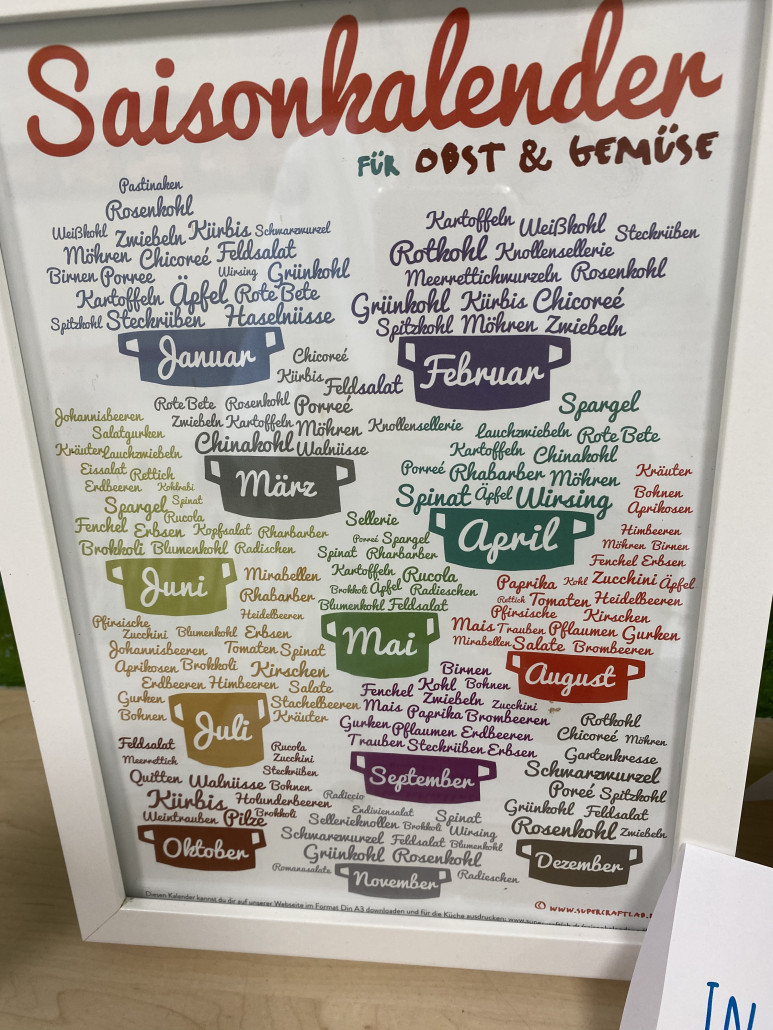 Saisonkalender
FÜR OBST & GEMÜSE
Pastinaken
Rosenkohl
Weißkohl Zwiebeln Kürbis Schwarzwurzel
Möhren Chicoreé Feldsalat
Birnen Porree Wirsing Grünkohl
Kartoffeln Äpfel Rote Bete
Spitzkohl Steckrüben Haselnüsse
Januar
Kartoffeln Weißkohl Steckrüben
Rotkohl Knollensellerie
Meerrettichwurzeln Rosenkohl
Grünkohl Kürbis Chicoreé
Spitzkohl Möhren Zwiebeln
Februar
Chicoreé
Kürbis Feldsalat
Rote Bete Rosenkohl Porreé
Zwiebeln Kartoffeln Möhren Knollensellerie
Chinakohl Walnüsse
März
Spargel
Lauchzwiebeln Rote Bete
Kartoffeln Chinakohl
Porreé Rhabarber Möhren
Spinat Äpfel Wirsing
April
Johannisbeeren
Salatgurken
Kräuter Lauchzwiebeln
Eissalat Rettich
Erdbeeren Kohlrabi
Spargel Spinat
Rucola
Fenchel Erbsen Kopfsalat Rharbarber
Brokkoli Blumenkohl Radischen
Juni
Sellerie
Porreé Spargel
Spinat Rharbarber
Kartoffeln Rucola
Brokkoli Apfel Radieschen
Blumenkohl Feldsalat
Mai
Kräuter
Bohnen
Aprikosen
Himbeeren
Möhren Birnen
Fenchel Erbsen
Paprika Kohl Zucchini Äpfel
Rettich Tomaten Heidelbeeren
Pfirsische Kirschen
Mais Trauben Pflaumen Gurken
Mirabellen Salate Brombeeren
August
Mirabellen
Rhabarber
Heidelbeeren
Pfirsische
Zucchini Blumenkohl Erbsen
Johannisbeeren Tomaten Spinat
Aprikosen Brokkoli Kirschen
Erdbeeren Himbeeren Salate
Gurken Stachelbeeren
Bohnen Kräuter
Juli
Birnen
Fenchel Kohl Bohnen
Mais Zwiebeln Zucchini
Paprika Brombeeren
Gurken Pflaumen Erdbeeren
Trauben Steckrüben Erbsen
September
Feldsalat Rucola
Meerrettich Zucchini
Steckrüben
Quitten Walnüsse Bohnen
Kürbis Holunderbeeren
Weintrauben Pilze Brokkoli
Oktober
Radiccio
Endiviensalat Spinat
Sellerieknollen Brokkoli Wirsing
Schwarzwurzel Feldsalat Blumenkohl
Grünkohl Rosenkohl
Romanasalate Radieschen
November
Rotkohl
Chicoreé Möhren
Gartenkresse
Schwarzwurzel
Poreé Spitzkohl
Grünkohl Feldsalat
Rosenkohl Zwiebeln
Dezember
Diesen Kalender kannst du dir auf unserer Webseite im Format Din A3 downloaden und für die Küche ausdrucken:
© WWW.SUPERCRAFTLAB.
IN